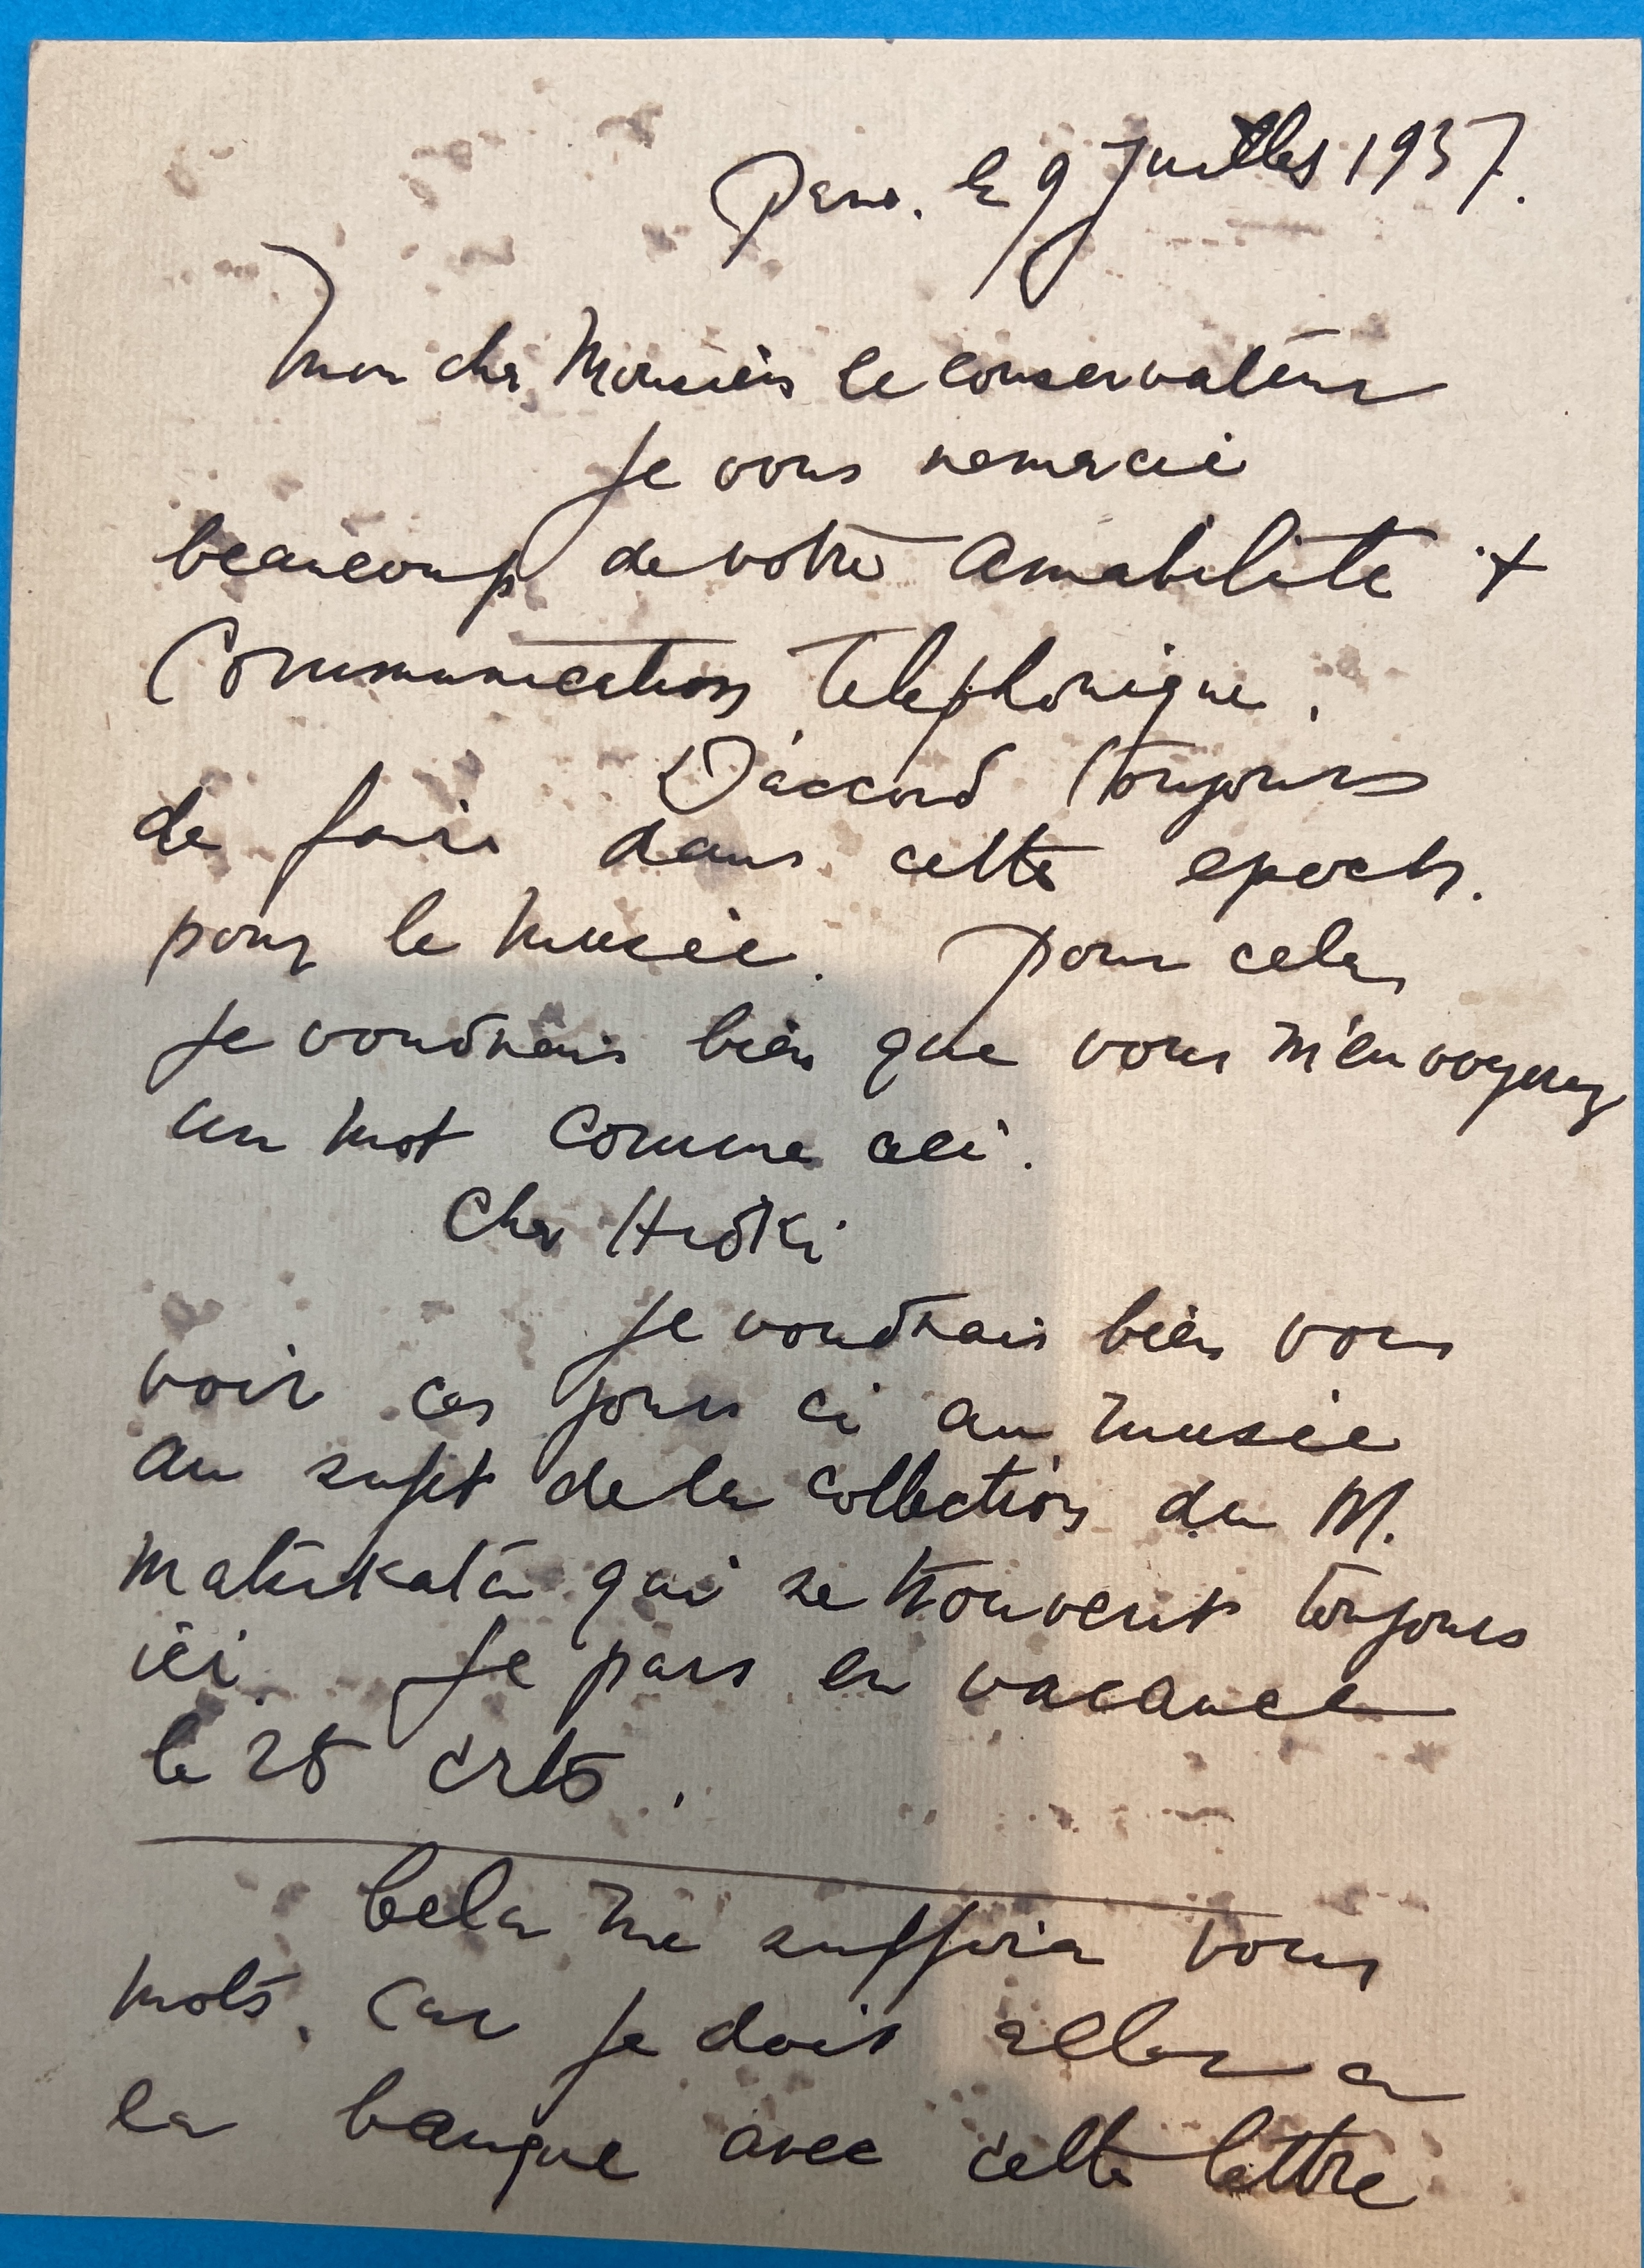 Paris. le 9 Juillet 1937.
Mon cher Monsieur le conservateur
Je vous remercie
beaucoup de votre amabilite et
Communication telephonique.
D'accord toujours
de faire dans cette epoch.
pour le musée. pour cela
je voudrais bien que vous m'envoyerez
un mot comme ceci.
Cher Hiroki
Je voudrais bien vous
voir ces jours ci au musée
au sujet de la collection de M.
qui se trouvent toujours
ici. Je pars en vacance
le 25 crts.
Cela me suffira vous
mots. Car je dois aller a
la banque avec cette lettre